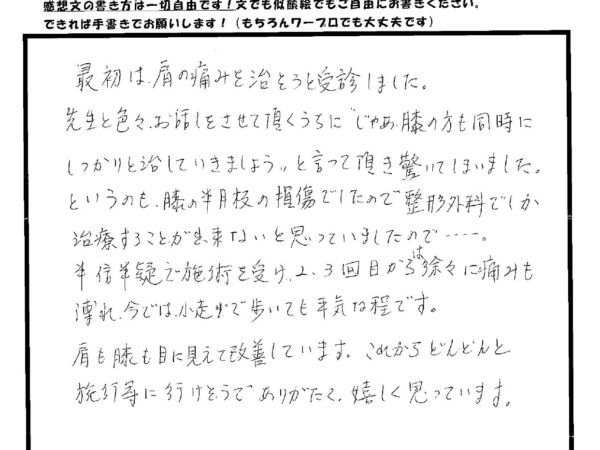 感想文の書き方は一切自由です!文でも似顔絵でもご自由にお書きください。
できれば手書きでお願いします!(もちろんワープロでも大丈夫です)
最初は、肩の痛みを治そうと受診しました。
先生と色々、お話しをさせて頂くうちに〝じゃあ、膝の方も同時に
しっかりと治していきましょう〟と言って頂き驚いてしまいました。
というのも、膝の半月板の損傷でしたので整形外科でしか
治療することが出来ないと思っていましたので……。
半信半疑で施術を受け、2、3回目からは徐々に痛みも
薄れ、今では、小走りで歩いても平気な程です。
肩も膝も目に見えて改善しています。これからどんどんと
旅行等に行けそうでありがたく、嬉しく思っています。